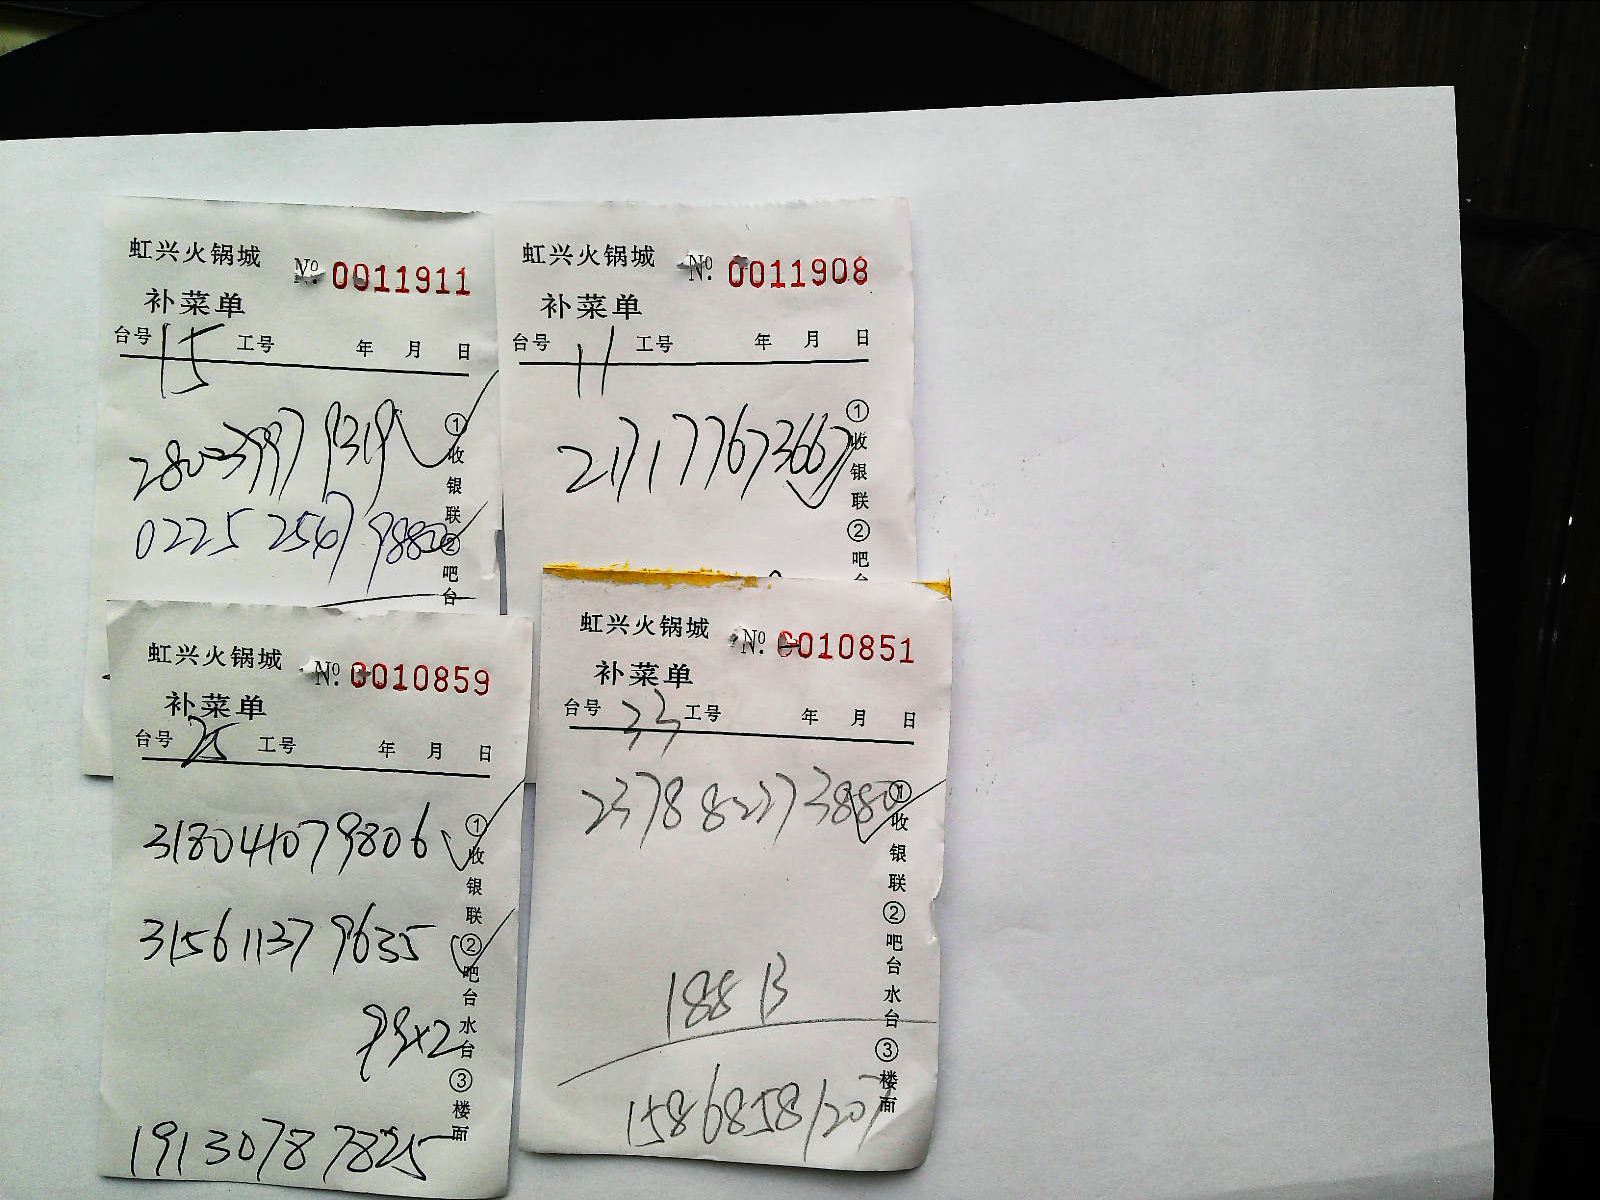 虹兴火锅城 No. 0011911
补菜单
台号 15 工号 年 月 日
①收银联②吧台
虹兴火锅城 No. 0011908
补菜单
台号 11 工号 年 月 日
217177673667
①收银联②吧台
虹兴火锅城 No. 0010859
补菜单
台号 25 工号 年 月 日
318041079806
315611379635
99x2
191307877825
①收银联②吧台水台③楼面
虹兴火锅城 No. 0010851
补菜单
台号 33 工号 年 月 日
188 B
15868581207
①收银联②吧台水台③楼面